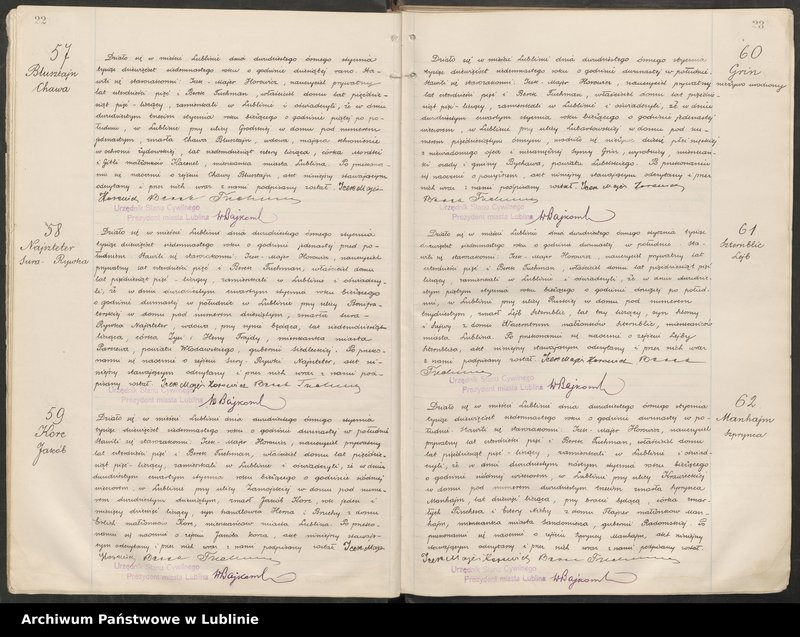 22
57
Blusztajn
Chawa
Działo się w mieście Lublinie dnia dwudziestego ósmego stycznia
tysiąc dziewięćset siedemnastego roku o godzinie dziesiątej rano. Sta-
wili się starozakonni: Icek-Majer Horowicz, nauczyciel prywatny
lat czterdzieści pięć i Berek Fuchman, właściciel domu lat pięćdzie-
siąt pięć liczący, zamieszkali w Lublinie i oświadczyli, że w dniu
dwudziestym trzecim stycznia roku bieżącego o godzinie piątej po po-
łudniu, w Lublinie przy ulicy Grodzkiej w domu pod numerem
jedenastym, zmarła Chawa Blusztajn, wdowa, mająca schronienie
w ochronie żydowskiej, lat siedemdziesiąt cztery licząca, córka
i Gitli małżonków mieszkanka miasta Lublina. Po przekona-
niu się naocznie o zejściu Chawy Blusztajn, akt niniejszy stawającym
odczytany i przez nich wraz z nami podpisany został. Icek Majer
Horowicz
Urzędnik Stanu Cywilnego
Prezydent miasta Lublina WBajkowski
58
Najszteler
Sura-Rywka
Działo się w mieście Lublinie dnia dwudziestego ósmego stycznia
tysiąc dziewięćset siedemnastego roku o godzinie jedenastej przed po-
łudniem. Stawili się starozakonni: Icek-Majer Horowicz, nauczyciel
prywatny lat czterdzieści pięć i Berek Fuchman, właściciel domu
lat pięćdziesiąt pięć-liczący, zamieszkali w Lublinie i oświadczy-
li, że w dniu dwudziestym czwartym stycznia roku bieżącego
o godzinie dwunastej w południe w Lublinie przy ulicy Bonifra-
terskiej w domu pod numerem dziesiątym, zmarła Sura-
Rywka Najszteler wdowa, przy synie będąca, lat siedemdziesiąt
licząca, córka i mieszkanka miasta
Parczewa, powiatu Włodawskiego, gubernii Siedleckiej. Po przeko-
naniu się naocznie o zejściu Sury-Rywki Najszteler, akt ni-
niejszy stawającym odczytany i przez nich wraz z nami pod-
pisany został. Icek Majer Horowicz
Urzędnik Stanu Cywilnego
Prezydent miasta Lublina WBajkowski
59
Kore
Jakób
Działo się w mieście Lublinie dnia dwudziestego ósmego stycznia
tysiąc dziewięćset siedemnastego roku o godzinie dwunastej w południe
Stawili się starozakonni: Icek-Majer Horowicz, nauczyciel prywatny
lat czterdzieści pięć i Berek Fuchman, właściciel domu lat pięćdzie-
siąt pięć-liczący, zamieszkali w Lublinie i oświadczyli, że w dniu
dwudziestym czwartym stycznia roku bieżącego o godzinie siódmej
wieczorem, w Lublinie przy ulicy Zamojskiej w domu pod nume-
rem dwudziestym dziewiątym, zmarł Jakób Kore, rok jeden i
miesięcy dziewięć liczący, syn handlowca i Bruchy z domu
małżonków Kore, mieszkańców miasta Lublina. Po przeko-
naniu się naocznie o zejściu Jakóba Kore, akt niniejszy stawają-
cym odczytany i przez nich wraz z nami podpisany został. Icek Majer
Horowicz
Urzędnik Stanu Cywilnego
Prezydent miasta Lublina WBajkowski
23
60
Grin
nieżywo urodzony
Działo się w mieście Lublinie dnia dwudziestego ósmego stycznia
tysiąc dziewięćset siedemnastego roku o godzinie dwunastej w południe.
Stawili się starozakonni: Icek-Majer Horowicz, nauczyciel prywatny
lat czterdzieści pięć i Berek Fuchman, właściciel domu lat pięćdzie-
siąt pięć-liczący, zamieszkali w Lublinie i oświadczyli, że w dniu
dwudziestym czwartym stycznia roku bieżącego o godzinie jedenastej
wieczorem, w Lublinie przy ulicy Lubartowskiej w domu pod nu-
merem pięćdziesiątym ósmym, urodziło się nieżywe dziecię płci męskiej
z niewiadomego ojca i niezamężnej Grin, wyrobnicy, mieszkan-
ki osady i gminy Bychawa, powiatu Lubelskiego. Po przekonaniu
się naocznie o powyższem, akt niniejszy stawającym odczytany i przez
nich wraz z nami podpisany został. Icek Majer Horowicz
Urzędnik Stanu Cywilnego
Prezydent miasta Lublina WBajkowski
61
Szternblic
Lejb
Działo się w mieście Lublinie dnia dwudziestego ósmego stycznia tysiąc
dziewięćset siedemnastego roku o godzinie dwunastej w południe. Sta-
wili się starozakonni: Icek-Majer Horowicz, nauczyciel prywatny lat
czterdzieści pięć i Berek Fuchman, właściciel domu lat pięćdziesiąt pięć
liczący, zamieszkali w Lublinie i oświadczyli, że w dniu dwudzie-
stym piątym stycznia roku bieżącego o godzinie drugiej po połud-
niu, w Lublinie przy ulicy Ruskiej w domu pod numerem
trzydziestym, zmarł Lejb Szternblic, lat trzy liczący, syn
i z domu małżonków Szternblic, mieszkańców
miasta Lublina. Po przekonaniu się naocznie o zejściu Lejby
Szternblica, akt niniejszy stawającym odczytany i przez nich wraz
z nami podpisany został. Icek Majer Horowicz
Urzędnik Stanu Cywilnego
Prezydent miasta Lublina WBajkowski
62
Manhajm
Szpryncа
Działo się w mieście Lublinie dnia dwudziestego ósmego stycznia
tysiąc dziewięćset siedemnastego roku o godzinie dwunastej w po-
łudnie. Stawili się starozakonni: Icek-Majer Horowicz, nauczyciel
prywatny lat czterdzieści pięć i Berek Fuchman, właściciel domu
lat pięćdziesiąt pięć-liczący, zamieszkali w Lublinie i oświad-
czyli, że w dniu dwudziestym szóstym stycznia roku bieżącego
o godzinie siódmej wieczorem, w Lublinie przy ulicy Krawieckiej
w domu pod numerem dwudziestym trzecim zmarła Szprynca
Manhajm, lat dziewięć licząca, przy braci będąca, córka zmar-
łych Pinchesa i Estery z domu małżonków Man-
hajm, mieszkanka miasta Sandomierza, gubernii Radomskiej. Po
przekonaniu się naocznie o zejściu Szpryncy Manhajm, akt niniejszy
stawającym odczytany i przez nich wraz z nami podpisany został.
Icek Majer Horowicz
Urzędnik Stanu Cywilnego
Prezydent miasta Lublina WBajkowski
Archiwum Państwowe w Lublinie